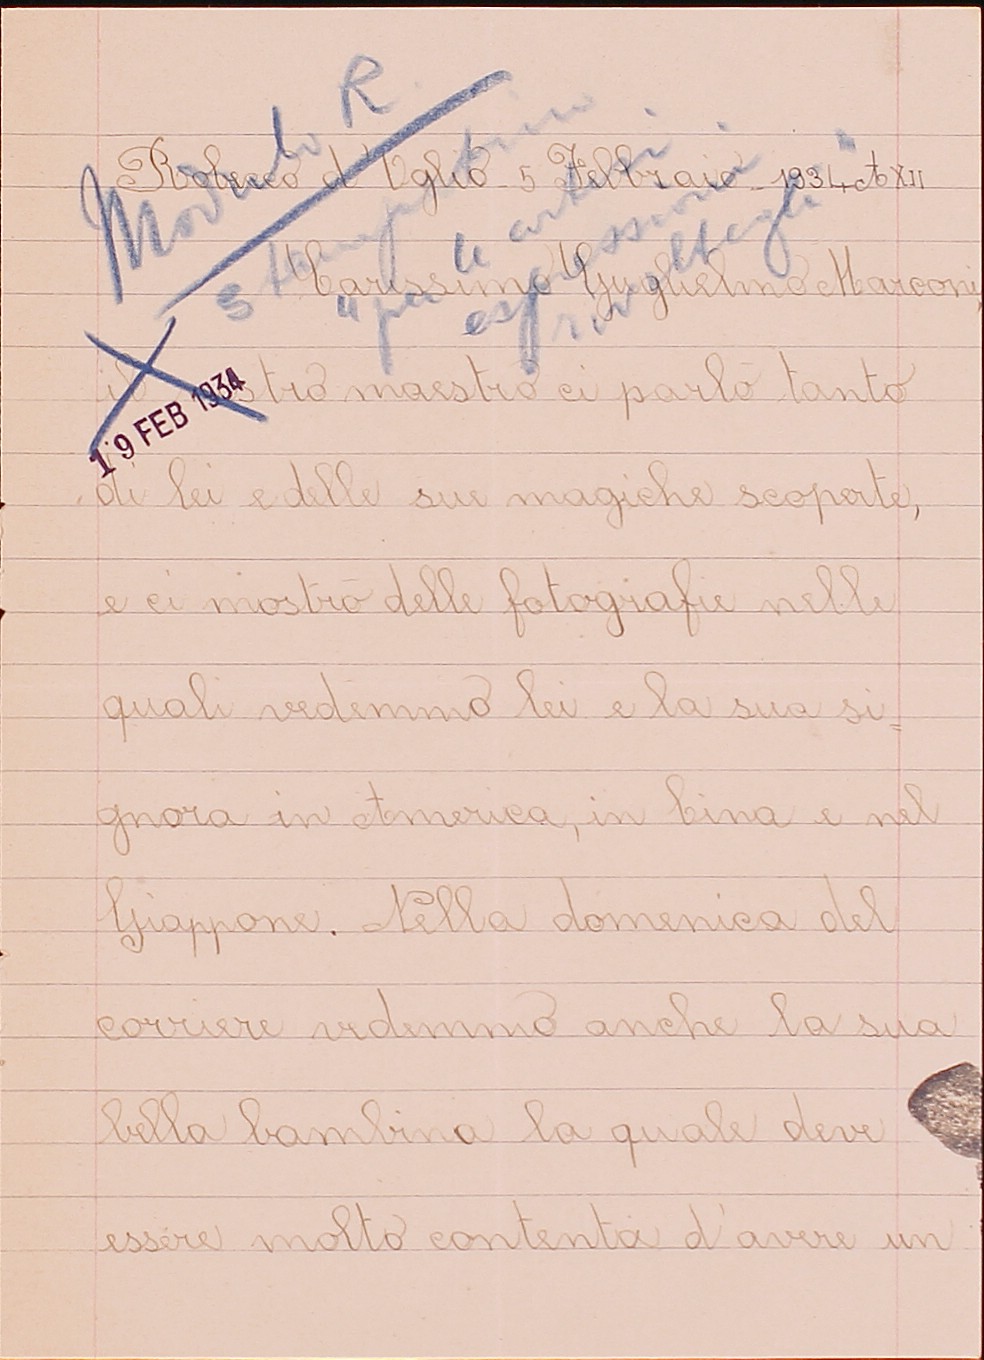 Modulo R
stampatino
"per le cortesi
espressioni
rivoltegli"
Robecco d'Oglio 5 Febbraio 1934 A XII
Carissimo Guglielmo Marconi,
il nostro maestro ci parlò tanto
19 FEB 1934
di lei e delle sue magiche scoperte,
e ci mostrò delle fotografie nelle
quali vedemmo lei e la sua si=
gnora in America, in Cina e nel
Giappone. Nella domenica del
corriere vedemmo anche la sua
bella bambina la quale deve
essere molto contenta d'avere un